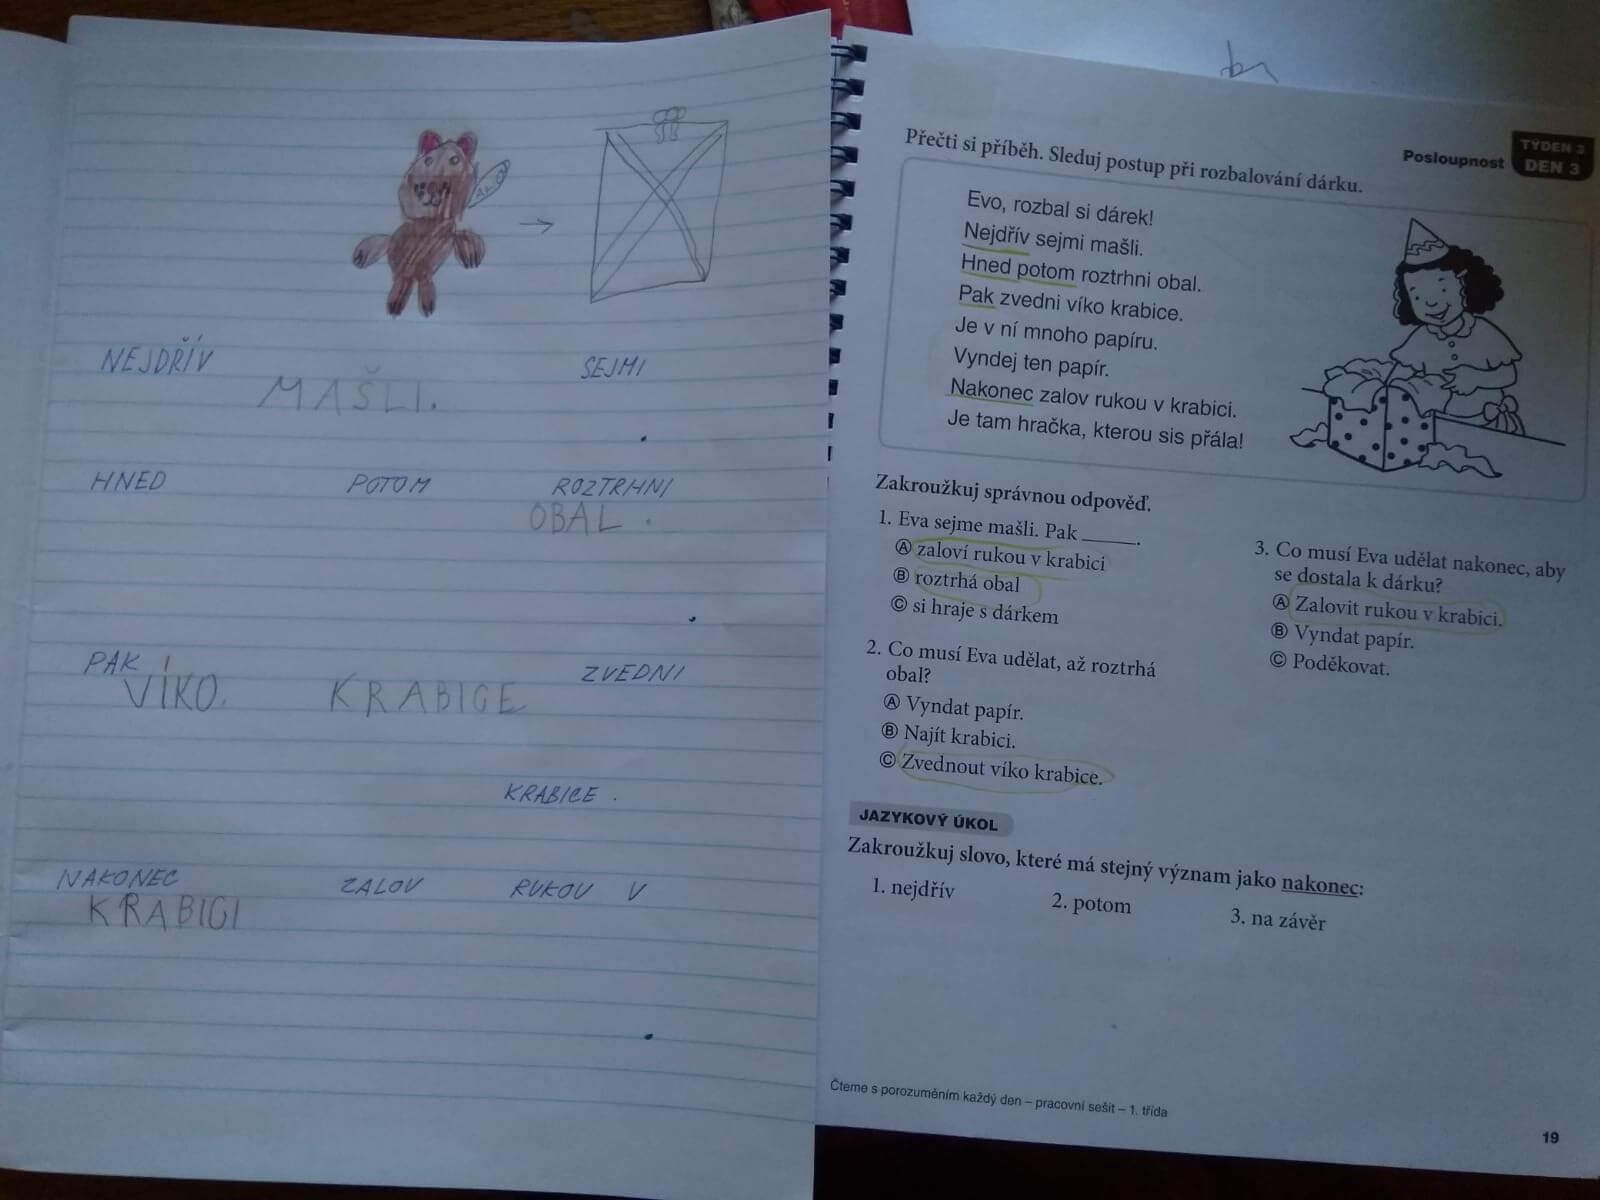 NEJDŘÍV SEJMI
MAŠLI.
HNED POTOM ROZTRHNI
OBAL.
PAK ZVEDNI
VÍKO. KRABICE
KRABICE.
NAKONEC ZALOV RUKOU V
KRABICI
Přečti si příběh. Sleduj postup při rozbalování dárku.
Posloupnost
TÝDEN 3
DEN 3
Evo, rozbal si dárek!
Nejdřív sejmi mašli.
Hned potom roztrhni obal.
Pak zvedni víko krabice.
Je v ní mnoho papíru.
Vyndej ten papír.
Nakonec zalov rukou v krabici.
Je tam hračka, kterou sis přála!
Zakroužkuj správnou odpověď.
1. Eva sejme mašli. Pak _____.
Ⓐ zaloví rukou v krabici
Ⓑ roztrhá obal
Ⓒ si hraje s dárkem
2. Co musí Eva udělat, až roztrhá
obal?
Ⓐ Vyndat papír.
Ⓑ Najít krabici.
Ⓒ Zvednout víko krabice.
3. Co musí Eva udělat nakonec, aby
se dostala k dárku?
Ⓐ Zalovit rukou v krabici.
Ⓑ Vyndat papír.
Ⓒ Poděkovat.
JAZYKOVÝ ÚKOL
Zakroužkuj slovo, které má stejný význam jako nakonec:
1. nejdřív 2. potom 3. na závěr
Čteme s porozuměním každý den – pracovní sešit – 1. třída
19